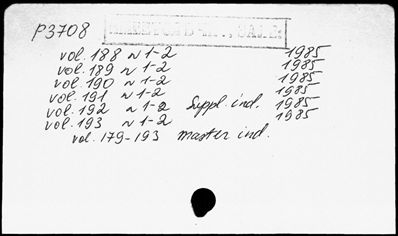 P3708
vol. 188 N 1-2 1985
vol. 189 N 1-2 1985
vol. 190 N 1-2 1985
vol. 191 N 1-2 1985
vol. 192 N 1-2 Suppl. ind. 1985
vol. 193 N 1-2 1985
vol. 179-193 master ind.